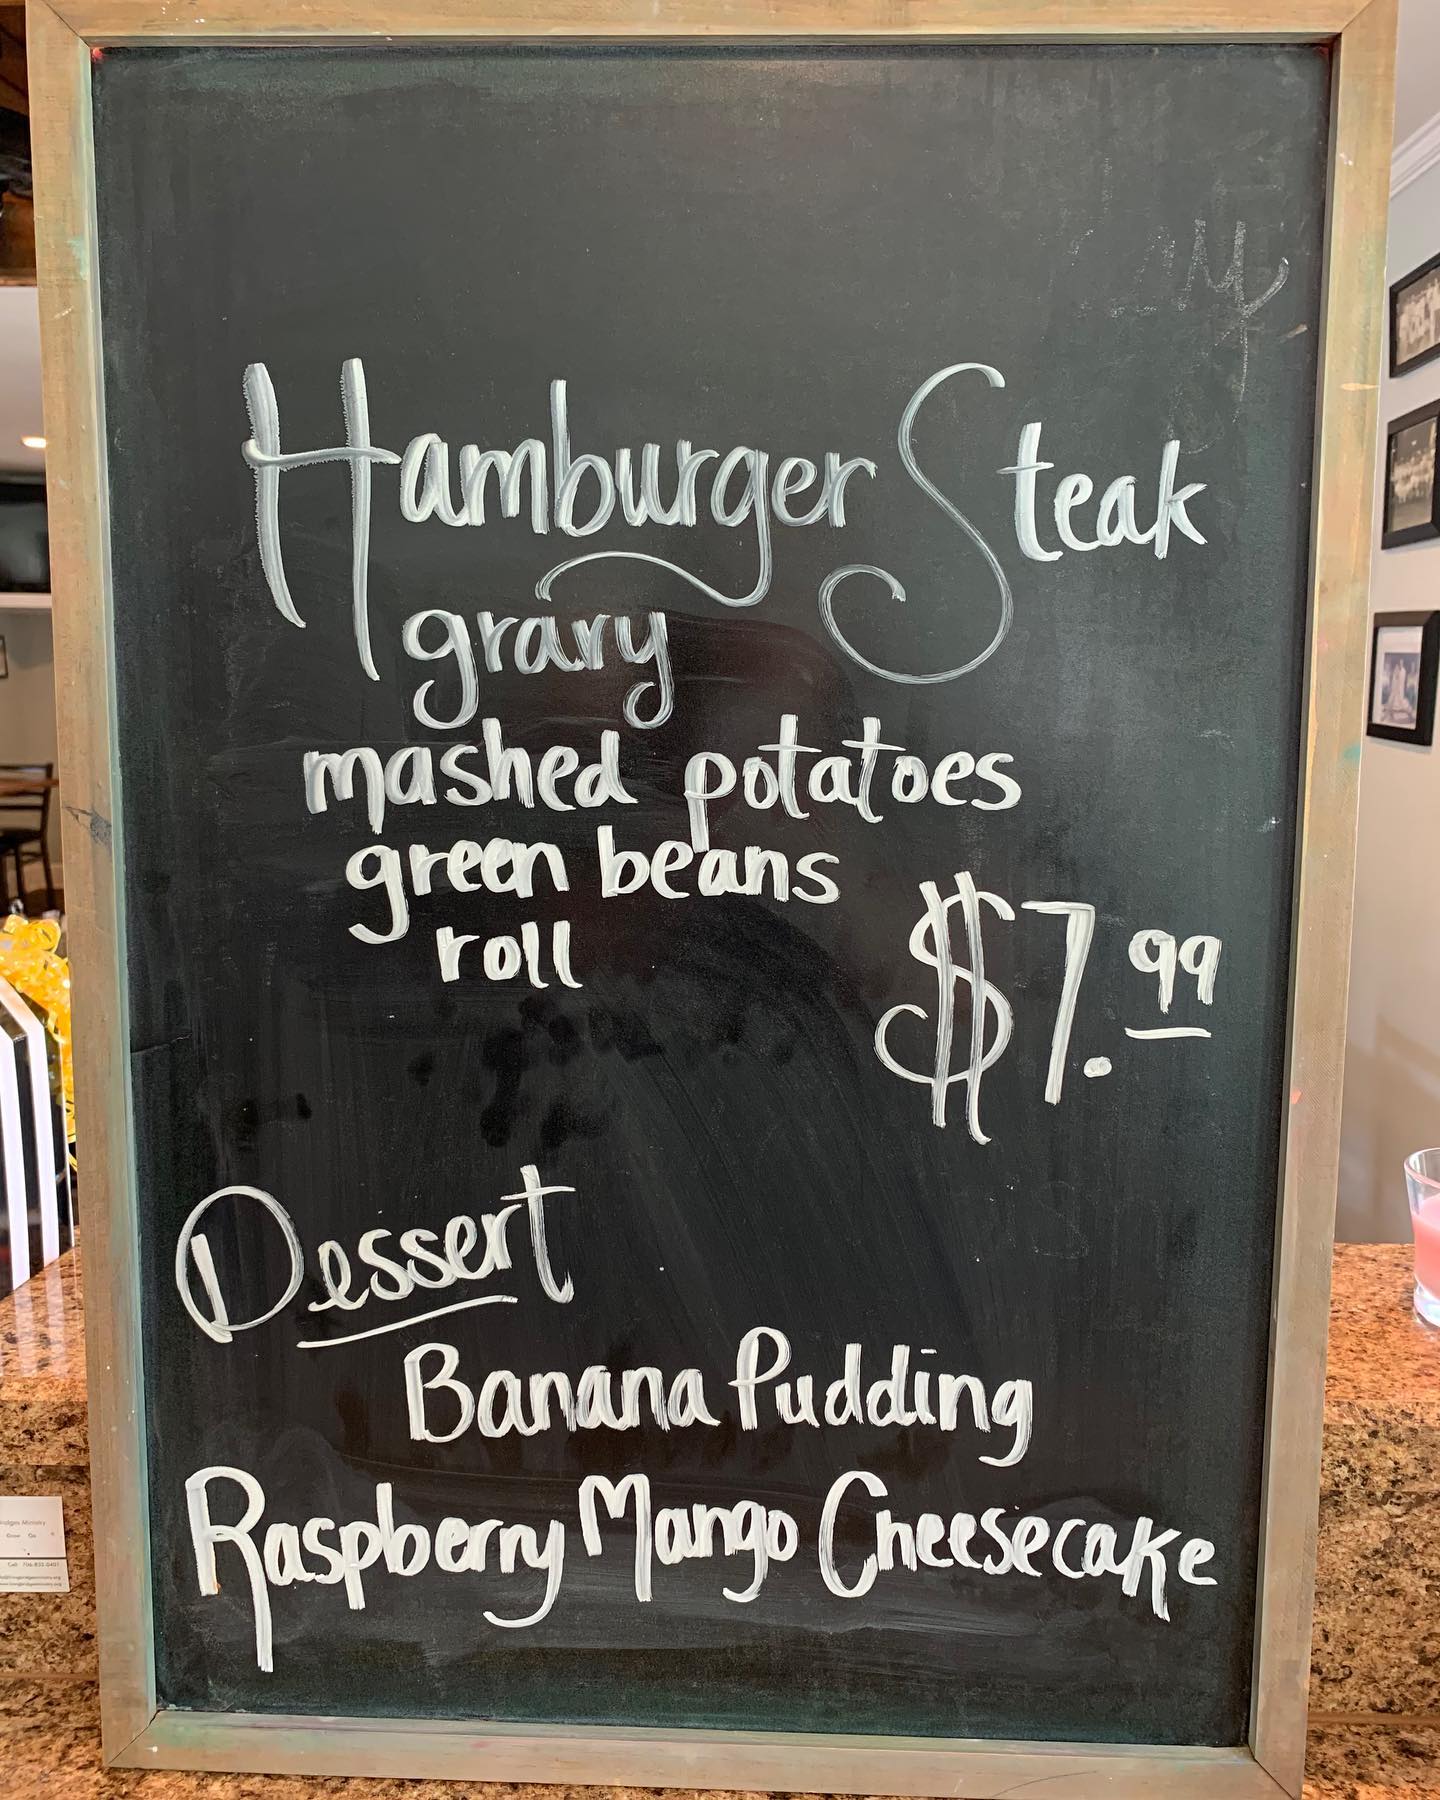 Hamburger Steak
gravy
mashed potatoes
green beans
roll
$7.99
Dessert
Banana Pudding
Raspberry Mango Cheesecake